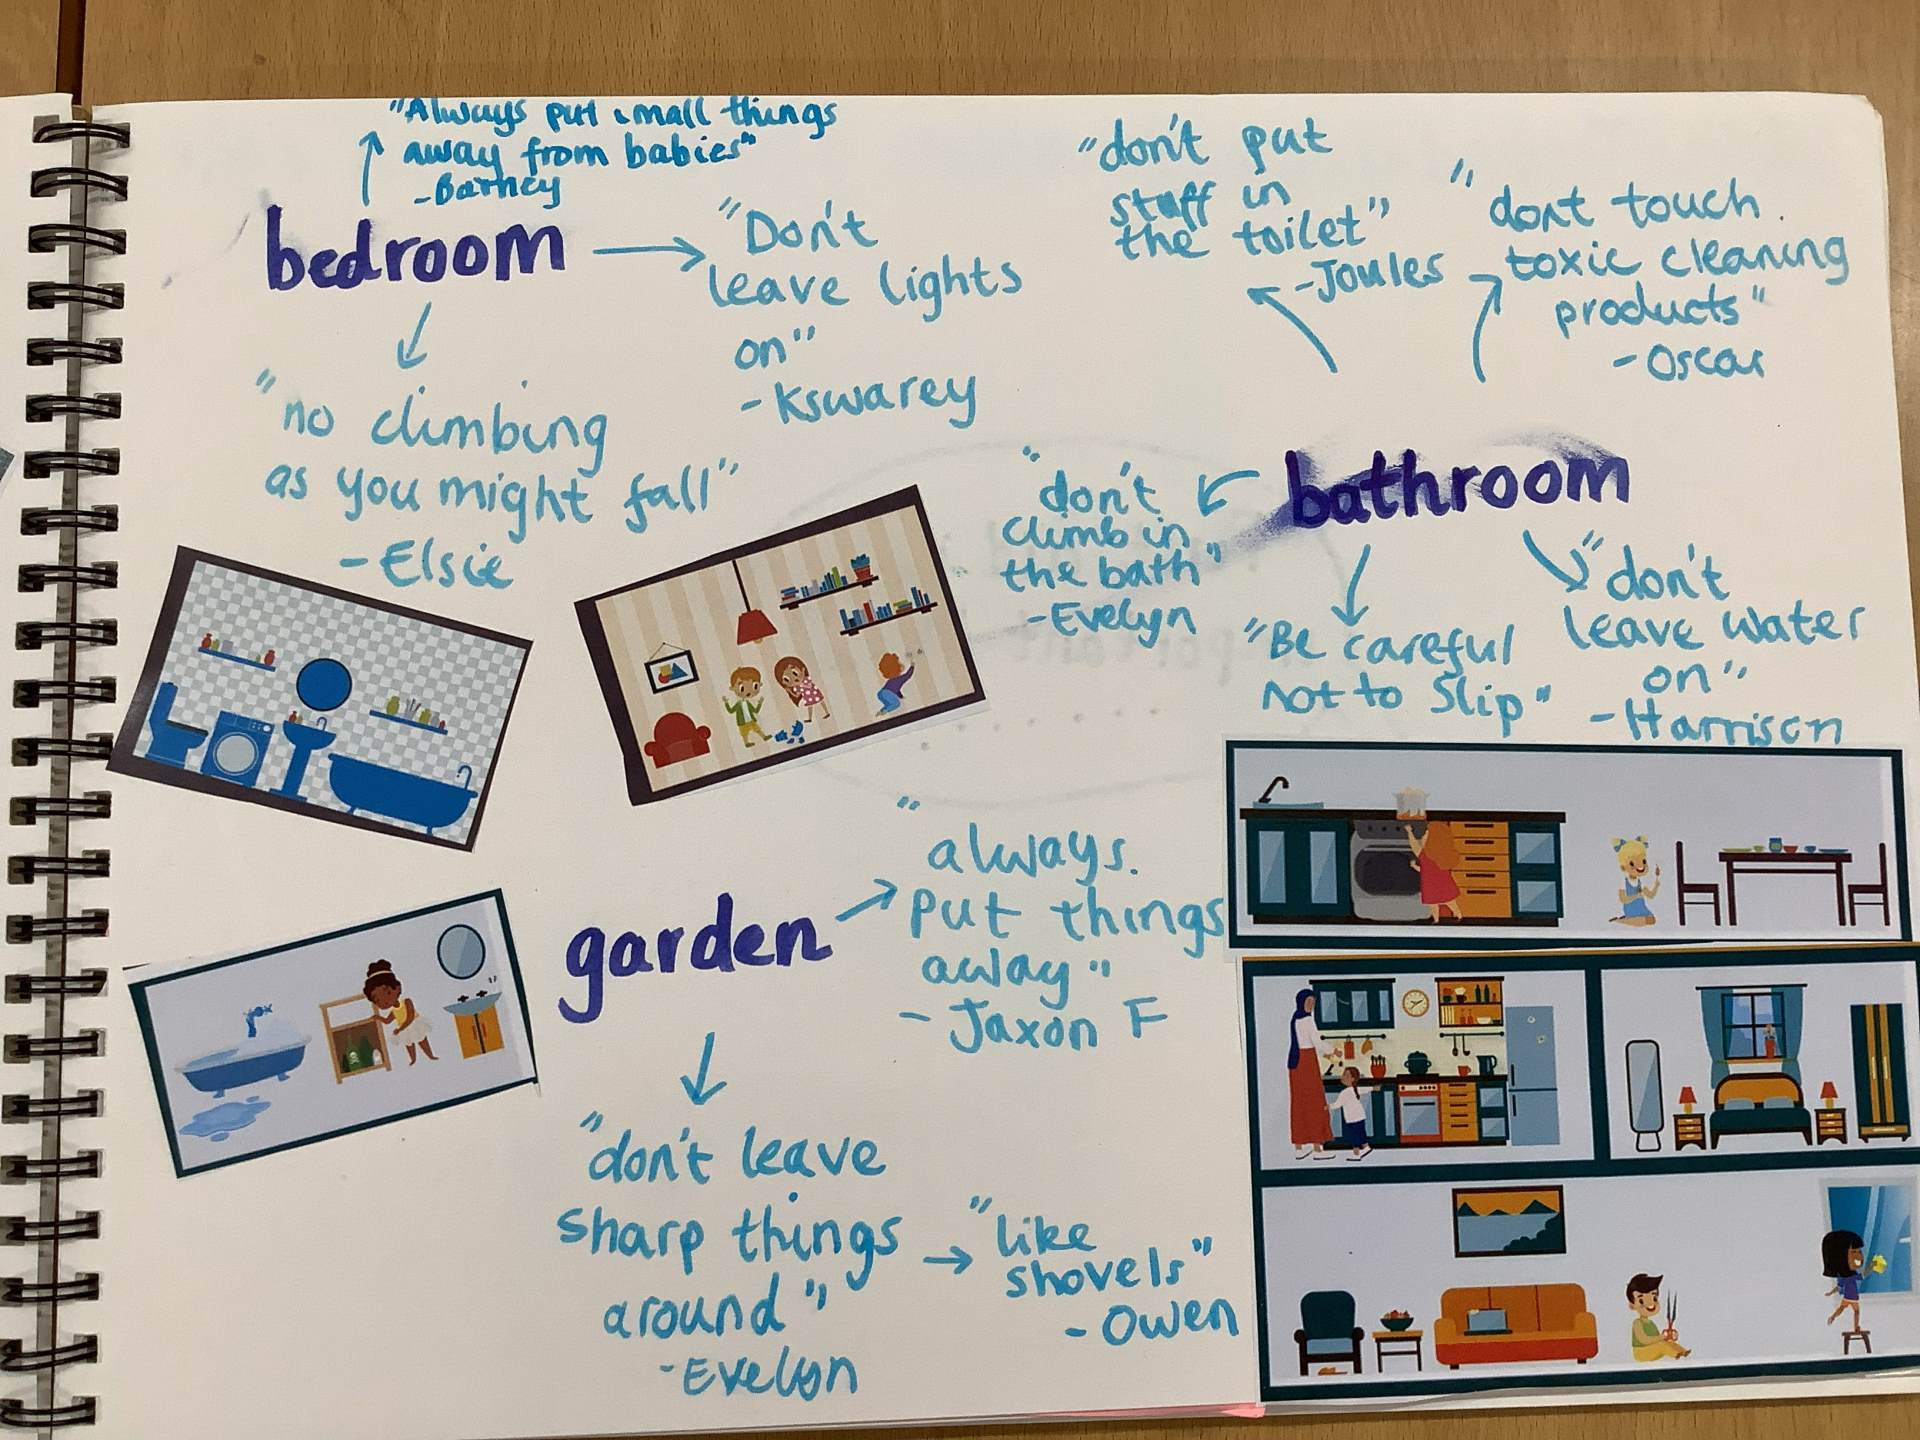 "Always put small things
away from babies"
-Barney
bedroom
"Don't
leave lights
on"
- Kswarey
"no climbing
as you might fall"
- Elsie
"don't put
stuff in
the toilet"
- Joules
"dont touch
toxic cleaning
products"
- Oscar
bathroom
"don't
climb in
the bath"
- Evelyn
"Be careful
not to Slip"
"don't
leave water
on"
- Harrison
garden
"always.
put things
away"
- Jaxon F
"don't leave
sharp things
around"
- Evelyn
"like
shovels"
- Owen